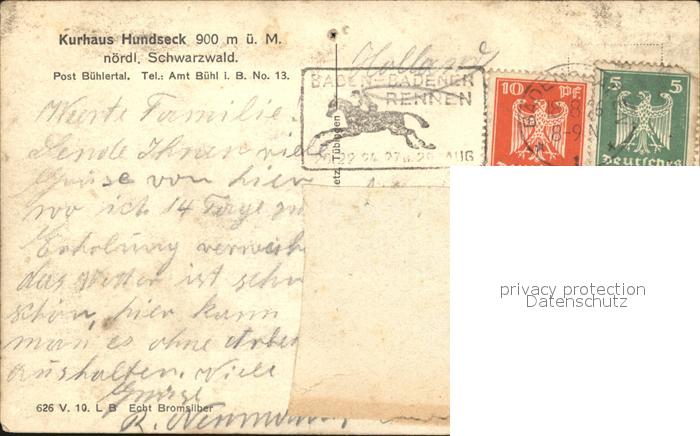 Kurhaus Hundseck 900 m ü. M.
nördl. Schwarzwald.
Post Bühlertal. Tel.: Amt Bühl i. B. No. 13.
Holland
BADEN-BADENER
RENNEN
22. 24. 27. u. 29. AUG
10 Pf.
5
5
Deutsches
Deutsches
Werte Familie!
Sende Ihnen viele
Grüsse von hier
wo ich 14 Tage zur
Erholung
das Wetter ist sehr
schön, hier kann
man es ohne
aushalten. Viele
Grüsse
626 V. 10. L B Echt Bromsilber
privacy protection
Datenschutz